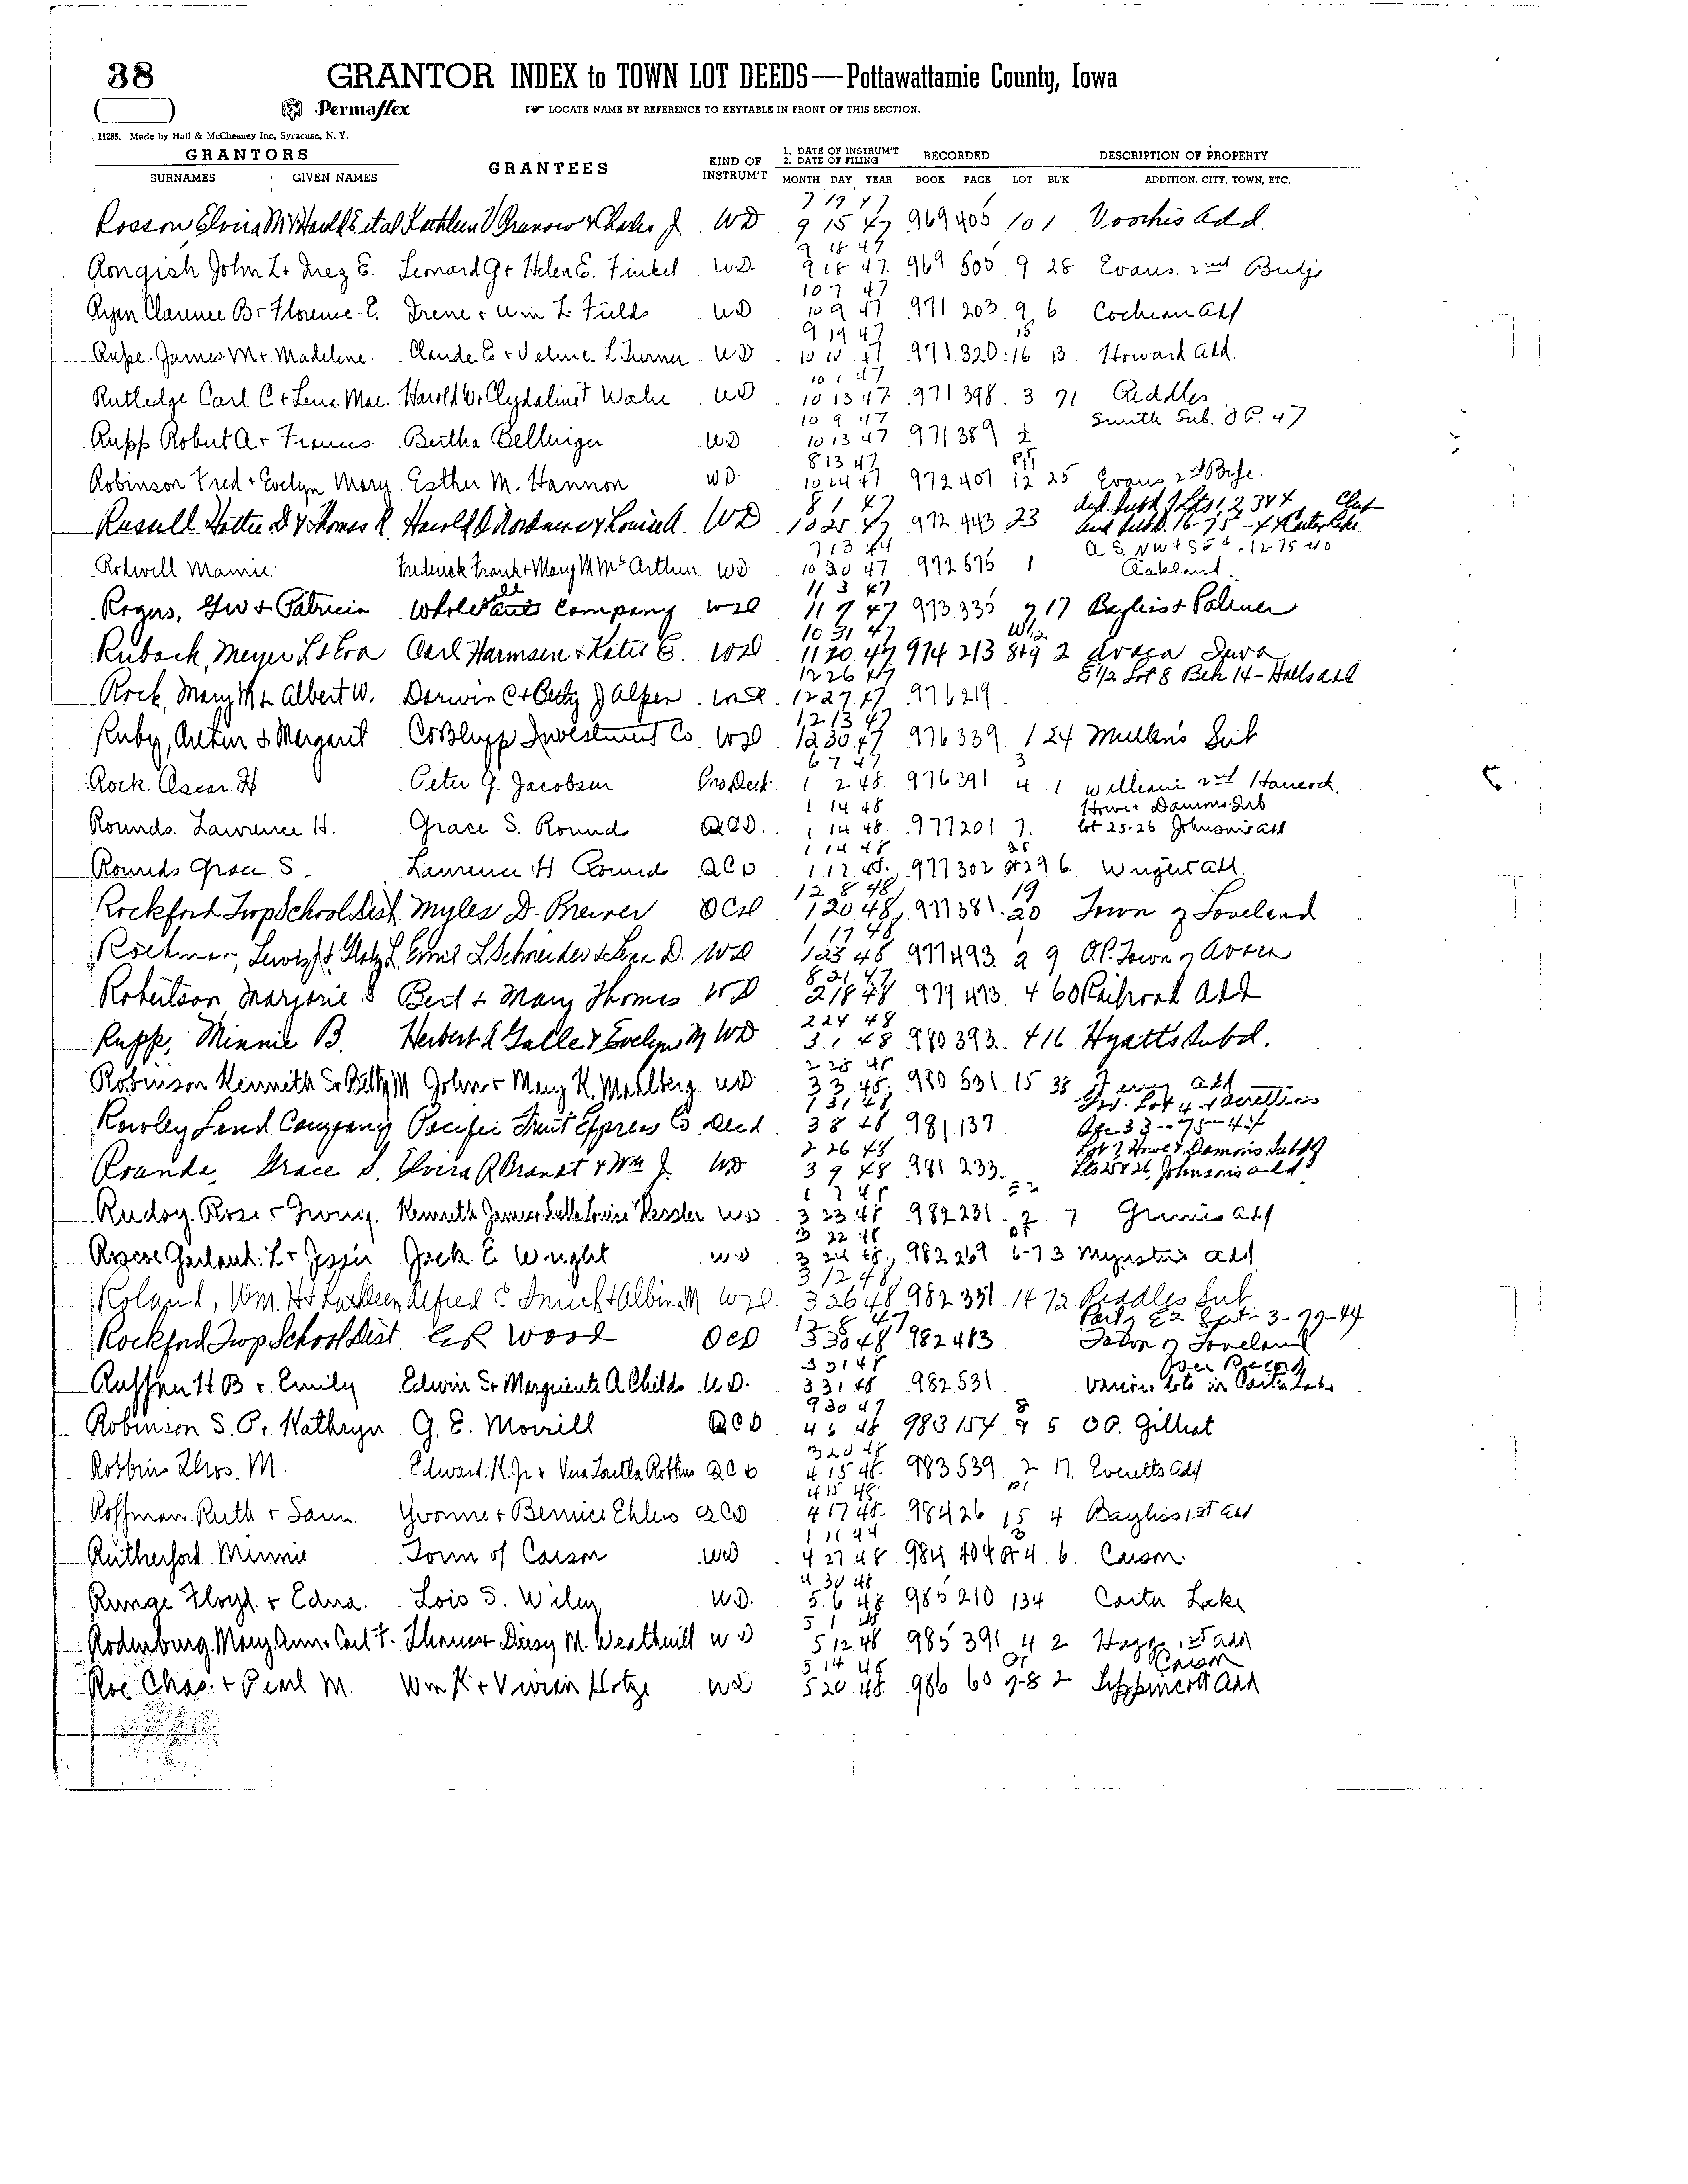 38
GRANTOR INDEX to TOWN LOT DEEDS—Pottawattamie County, Iowa
Permaflex
LOCATE NAME BY REFERENCE TO KEYTABLE IN FRONT OF THIS SECTION.
11285. Made by Hall & McChesney Inc. Syracuse, N. Y.
GRANTORS GRANTEES KIND OF INSTRUM'T 1. DATE OF INSTRUM'T 2. DATE OF FILING RECORDED DESCRIPTION OF PROPERTY
SURNAMES GIVEN NAMES MONTH DAY YEAR BOOK PAGE LOT BL'K ADDITION, CITY, TOWN, ETC.
7 19 47
Rosson, Elvira M et al Kathleen V & Charles J. WD 9 15 47 969 405 10 1 Voorhis Add.
9 18 47
Rongish John L + Inez E. Leonard G + Helen E. Finkel WD. 9 18 47. 969 505 9 28 Evans. 2nd Bridge
10 7 47
Ryan Clarence B + Florence E. Irene + Wm L. Fields WD 10 9 47 971 203 9 6 Cochran Add
9 19 47 15
Rupe James M + Madeline. Claude E + Velma L Turner WD 10 10 47 971 320 16 13 Howard Add.
10 1 47
Rutledge Carl C + Lena Mae. Harold W + WD 10 13 47 971 398 3 71 Riddles
10 9 47 Smith Sub. 47
Rupp Robert A + Frances Bertha Bellinger WD 10 13 47 971 389 2
8 13 47 pt
Robinson Fred + Evelyn Mary Esther M. Hannon WD. 10 24 47 972 407 12 25 Evans 2nd Bridge.
8 1 47
Russell Hattie D & Thomas R. Harold WD 10 25 47 972 443 23
7 13 44
Rodwell Mamie Frederick Frank + Mary M McArthur WD. 10 30 47 972 575 1 Oakland
11 3 47
Rogers, Guy & Patricia Company WD 11 7 47 973 335 9 17 Bayliss & Palmer
10 31 47 W½
Ruback, Meyer L & Eva Carl Harmsen & Katie E. WD 11 20 47 974 213 8+9 2 Avoca Iowa
12 26 47 E 1/2 Lot 8 Blk 14 - Halls add
Rock, Mary M & Albert W. Darwin C & Betty J Alfer WD 12 27 47 976 219
12 13 47
Ruby, Arthur & Margaret CoBlupp Investment Co WD 12 30 47 976 339 1 24 Mullen's Sub
6 7 47 3
Rock. Oscar H Peter G. Jacobsen 1 2 48. 976 391 4 1 2nd Hancock.
1 14 48 Howe + Damons Sub
Rounds. Lawrence H. Grace S. Rounds QCD. 1 14 48. 977 201 7. lot 25-26 Johnsons add
1 14 48
Rounds Grace S. Lawrence H Rounds QCD 1 17 48. 977 302 6. Wright Add.
12 8 48 19
Rockford Twp School Dist. Myles D. Brewer QCD 1 20 48, 977 381. 20 Town of Loveland
1 17 48 1
Emil L Schneider & Lena D. WD 1 23 48 977 493 2 9 O.P. Town of Avoca
8 21 47
Robertson, Marjorie S Bert & Mary Thomas WD 2 18 48 979 473 4 60 Railroad Add
2 24 48
Rupp, Minnie B. Herbert A Galle & Evelyn M WD 3 1 48 980 393 4 16 Hyatts Subd.
2 28 48
Robinson Kenneth S + Betty M John + Mary K. Mahlberg WD 3 3 48. 980 531 15 38 Ferry Add
1 31 48 Gov. Lot 4 + Accretions
Rowley Land Company Pacific Fruit Express Co Deed 3 8 48 981 137 Sec 33-75-44
2 26 48 Lot 7 Howe & Damons Subd of
Rounds, Grace S. Elvira R Brandt & Wm J. WD 3 9 48 981 233 Lts 25 & 26, Johnsons add
1 7 48
Rudoy. Rose + Irving. Kenneth James + Lulle Louise Kessler WD 3 23 48 982 231 2 7 Grimes Add
3 22 48 pt
Roscoe Garland L + Jessie Jack E Wright WD 3 24 48, 982 269 6-7 3 Mynsters add
3 12 48
Roland, Wm. H & Kathleen Alfred C & Albin M WD. 3 26 48 982 351 14 72 Riddles Sub
12 8 47 Part of E2 3-77-44
Rockford Twp School Dist C R Wood QCD 3 30 48 982 483 Town of Loveland
3 31 48 See Record
H B + Emily Edwin S + Marguerite A Childs W.D. 3 31 48 982 531 Various lots in Carter Lake
9 30 47 8
Robinson S. P. Kathryn G. E. Morrill QCD 4 6 48 983 154 9 5 OP. Gilliat
3 20 48
Robbins Thos. M. Edward K. Jr + Vera Loretta Robbins QCD 4 15 48. 983 539 2 17. Everetts Add
4 15 48 pt
Roffman Ruth + Sam. Yvonne + Bernice Ehlers QCD 4 17 48- 984 26 15 4 Bayliss 1st Add
1 11 44 3
Rutherford Minnie Town of Carson WD 4 27 48 984 404 4. 6. Carson.
4 30 48
Runge Floyd + Edna. Lois S. Wiley WD. 5 6 48 985 210 134 Carter Lake
5 1 48
Rodenburg Mary Ann + Carl F. Thomas + Daisy M. Weatherill WD 5 12 48 985 391 4 2. Hagg 1st add
5 14 48 Carson
Roe Chas. + Pearl M. Wm K + Vivian Hotze WD 5 20 48. 986 60 7-8 2 Lippincott Add